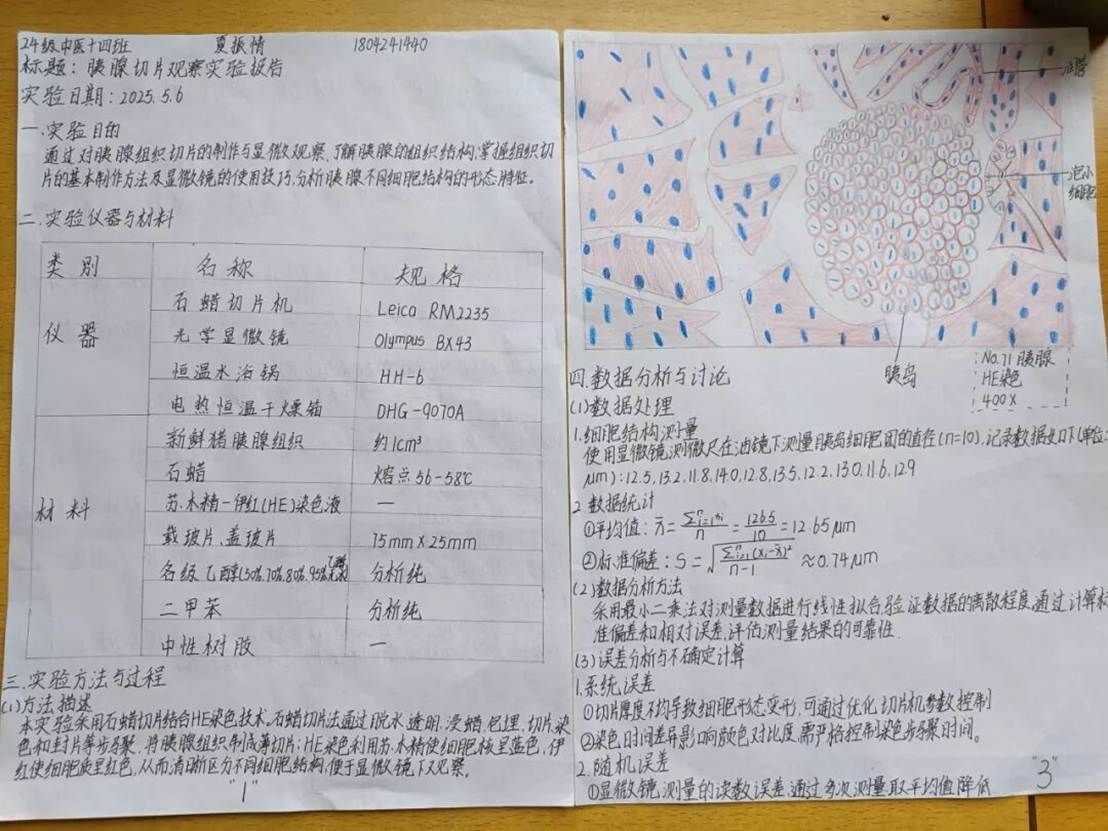 24级中医十四班 夏振情 1804241440
标题：胰腺切片观察实验报告
实验日期：2025.5.6
一.实验目的
通过对胰腺组织切片的制作与显微观察，了解胰腺的组织结构，掌握组织切
片的基本制作方法及显微镜的使用技巧，分析胰腺不同细胞结构的形态特征。
二.实验仪器与材料
类别 名称 规格
仪器
石蜡切片机 Leica RM2235
光学显微镜 Olympus BX43
恒温水浴锅 HH-6
电热恒温干燥箱 DHG-9070A
材料
新鲜猪胰腺组织 约1cm³
石蜡 熔点56-58℃
苏木精-伊红(HE)染色液 —
载玻片、盖玻片 75mm×25mm
各级乙醇(50%.70%.80%.95% 分析纯
二甲苯 分析纯
中性树胶 —
三.实验方法与过程
(1)方法描述
本实验采用石蜡切片结合HE染色技术。石蜡切片法通过脱水、透明、浸蜡、包埋、切片、染
色和封片等步骤，将胰腺组织制成薄切片；HE染色利用苏木精使细胞核呈蓝色，伊
红使细胞质呈红色，从而清晰区分不同细胞结构，便于显微镜下观察。
"1"
泡心
细胞
胰岛
No.71 胰腺
HE染色
400×
四.数据分析与讨论
(1)数据处理
1.细胞结构测量
使用显微镜测微尺在油镜下测量胰岛细胞团的直径(n=10)，记录数据如下(单位:
μm):12.5,13.2,11.8,14.0,12.8,13.5,12.2,13.0,11.6,12.9
2.数据统计
①平均值：x̄=Σⁿᵢ₌₁xᵢ/n=126.5/10=12.65μm
②标准偏差：S=√(Σⁿᵢ₌₁(xᵢ-x̄)²/(n-1))≈0.74μm
(2)数据分析方法
采用最小二乘法对测量数据进行线性拟合，验证数据的离散程度，通过计算标
准偏差和相对误差，评估测量结果的可靠性.
(3)误差分析与不确定计算
1.系统误差
①切片厚度不均导致细胞形态变形，可通过优化切片机参数控制
②染色时间差异影响颜色对比度，需严格控制染色步骤时间。
2.随机误差
①显微镜测量的读数误差，通过多次测量取平均值降低
"3"